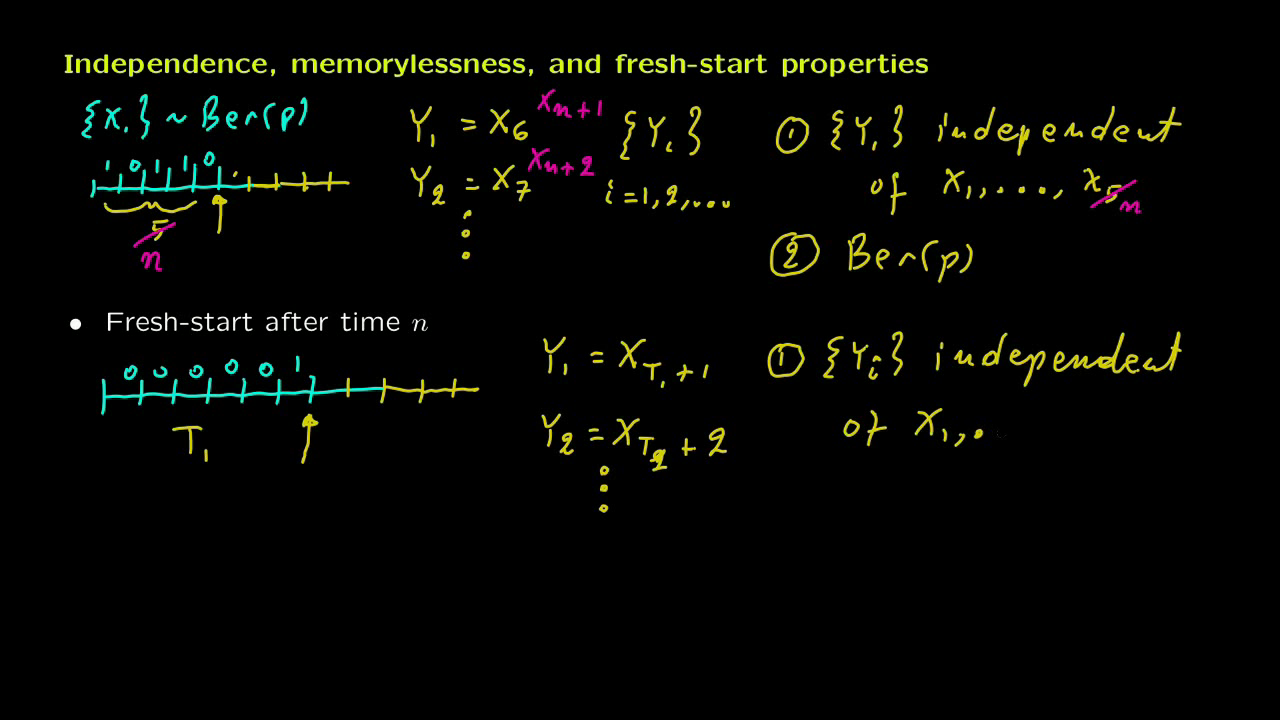 Independence, memorylessness, and fresh-start properties
{X_i} ~ Ber(p)
1 0 1 1 0
5
n
Y_1 = X_6 X_{n+1}
Y_2 = X_7 X_{n+2}
⋮
{Y_i}
i = 1, 2, ...
① {Y_i} independent
of X_1, ..., X_5 n
② Ber(p)
• Fresh-start after time n
0 0 0 0 0 1
T_1
Y_1 = X_{T_1 + 1}
Y_2 = X_{T_2 + 2}
⋮
① {Y_i} independent
of X_1, .